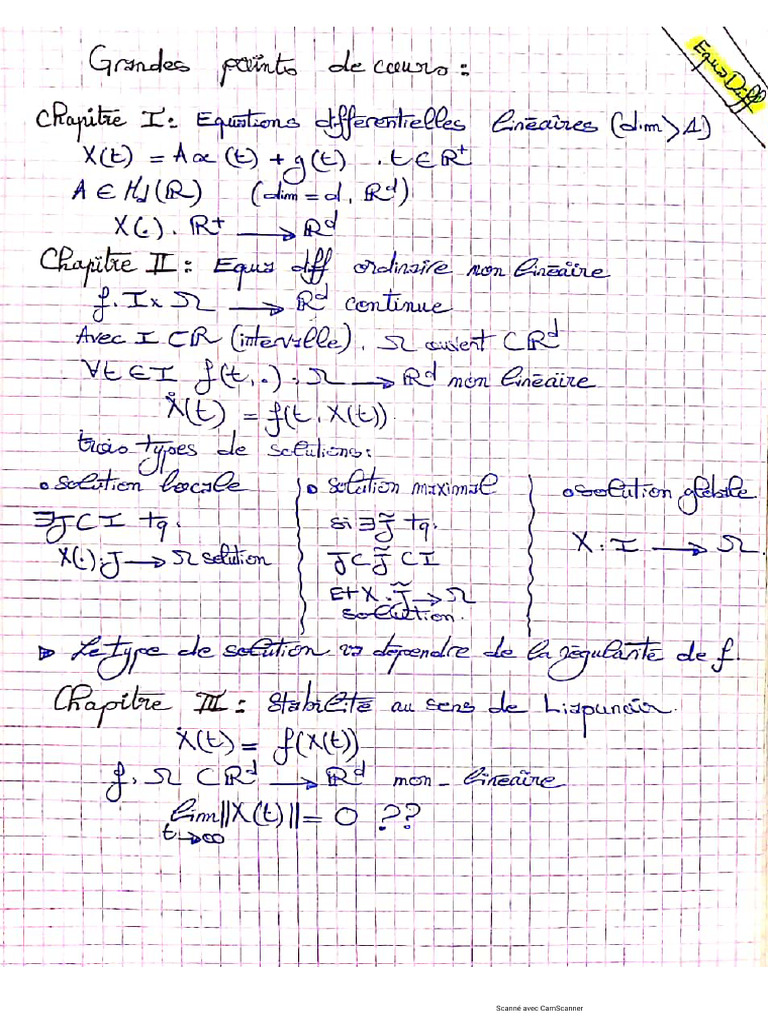 Equa Diff
Grandes points de cours :
Chapitre I : Equations differentielles linéaires (dim > 1)
X(t) = A x(t) + g(t) . t ∈ R⁺
A ∈ M_d(R) (dim = d, R^d)
X(.) . R⁺ → R^d
Chapitre II : Equa diff ordinaire non linéaire
f . I × Ω → R^d continue
Avec I ⊂ R (intervalle), Ω ouvert ⊂ R^d
∀t ∈ I f(t, .) : Ω → R^d non linéaire
Ẋ(t) = f(t, X(t)).
trois types de solutions :
• solution locale
∃ J ⊂ I tq.
X(.) : J → Ω solution
• solution maximal
si ∃ J̃ tq.
J ⊂ J̃ ⊂ I
Et X . J̃ → Ω
solution.
• solution globale
X . I → Ω.
▷ Le type de solution va dépendre de la régularité de f.
Chapitre III : Stabilité au sens de Liapunov.
Ẋ(t) = f(X(t))
f . Ω ⊂ R^d → R^d non-linéaire
lim ||X(t)|| = 0 ??
t→∞
Scanné avec CamScanner